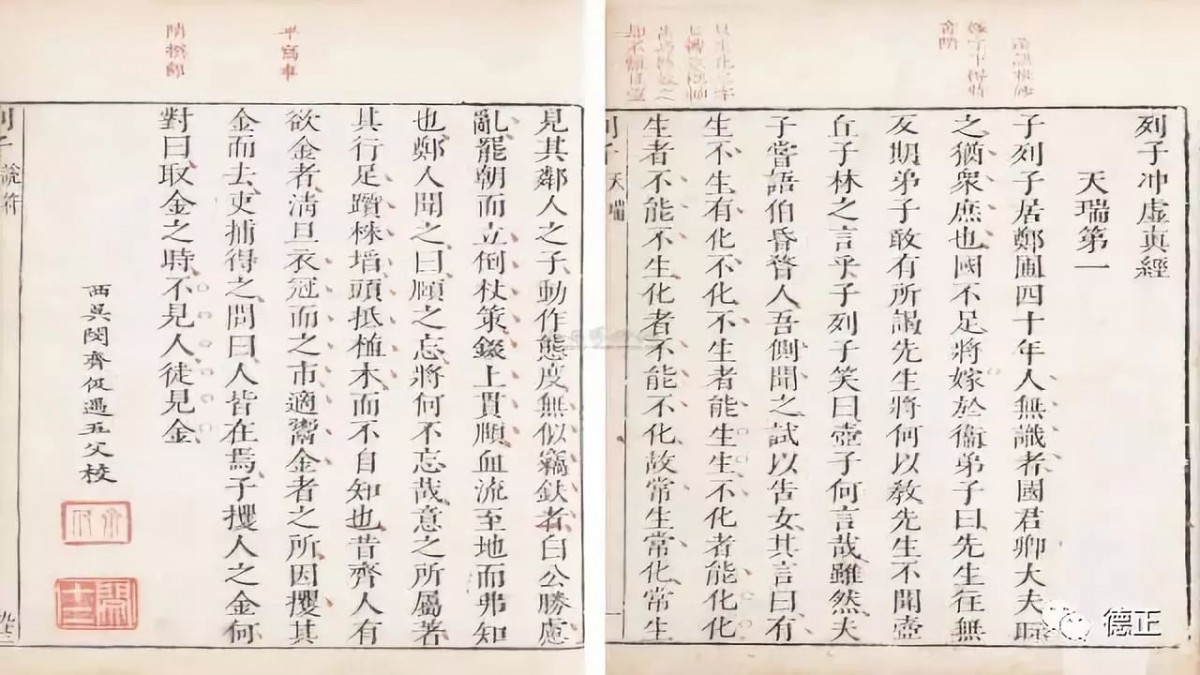 列子冲虛真經
天瑞第一
子列子居鄭圃四十年人無識者國君卿大夫眂
之猶衆庶也國不足將嫁於衞弟子曰先生往無
反期弟子敢有所謁先生將何以敎先生不聞壺
丘子林之言乎子列子笑曰壺子何言哉雖然夫
子嘗語伯昏瞀人吾側聞之試以告女其言曰有
生不生有化不化不生者能生生不化者能化化
生者不能不生化者不能不化故常生常化常生
列子 天瑞 一
見其鄰人之子動作態度無似竊鈇者白公勝慮
亂罷朝而立倒杖策錣上貫頤血流至地而弗知
也鄭人聞之曰頤之忘將何不忘哉意之所屬著
其行足躓株埳頭抵植木而不自知也昔齊人有
欲金者清旦衣冠而之市適鬻金者之所因攫其
金而去吏捕得之問曰人皆在焉子攫人之金何
對曰取金之時不見人徒見金
西吳閔齊伋遇五父校
列子 說符
德正